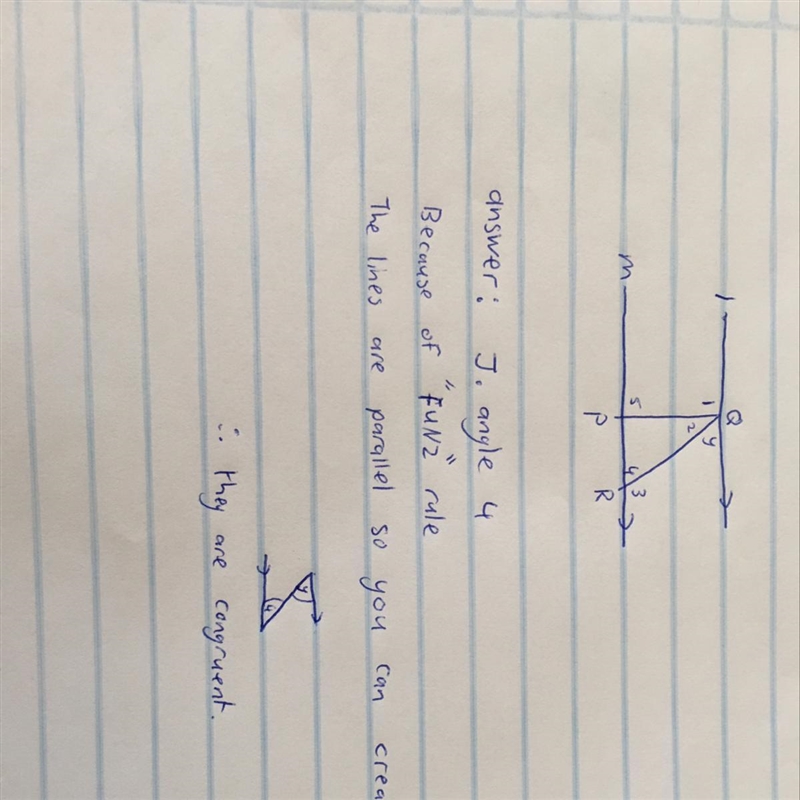 l
Q
1 y
2
5 4 3
m
P R
answer: J. angle 4
Because of "FUNZ" rule
The lines are parallel so you can crea
y
4
∴ they are congruent.